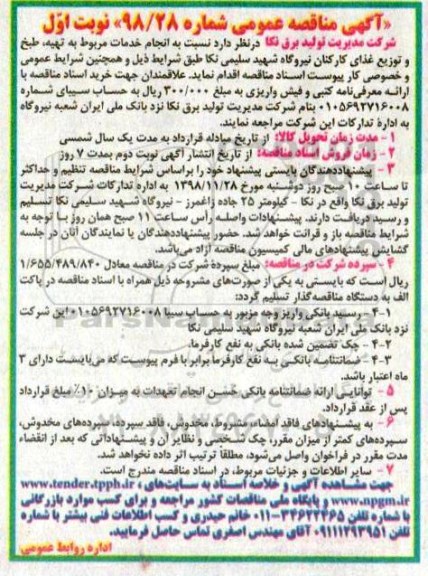 «آگهی مناقصه عمومی شماره ۹۸/۲۸» نوبت اوّل
شرکت مدیریت تولید برق نکا درنظر دارد نسبت به انجام خدمات مربوط به تهیه، طبخ
و توزیع غذای کارکنان نیروگاه شهید سلیمی نکا طبق شرایط ذیل و همچنین شرایط عمومی
و خصوصی کار پیوست اسناد مناقصه اقدام نماید. علاقمندان جهت خرید اسناد مناقصه با
ارائه معرفی‌نامه کتبی و فیش واریزی به مبلغ ۳۰۰/۰۰۰ ریال به حساب سیبای شماره
۰۱۰۵۶۹۲۷۱۶۰۰۸ بنام شرکت مدیریت تولید برق نکا نزد بانک ملی ایران شعبه نیروگاه
به اداره تدارکات این شرکت مراجعه نمایند.
۱- مدت زمان تحویل کالا: از تاریخ مبادله قرارداد به مدت یک سال شمسی
۲- زمان فروش اسناد مناقصه: از تاریخ انتشار آگهی نوبت دوم بمدت ۷ روز
۳- پیشنهاددهندگان بایستی پیشنهاد خود را براساس شرایط مناقصه تنظیم و حداکثر
تا ساعت ۱۰ صبح روز دوشنبه مورخ ۱۳۹۸/۱۱/۲۸ به اداره تدارکات شرکت مدیریت
تولید برق نکا واقع در نکا - کیلومتر ۲۵ جاده زاغمرز - نیروگاه شهید سلیمی نکا تسلیم
و رسید دریافت دارند. پیشنهادات واصله رأس ساعت ۱۱ صبح همان روز با توجه به
شرایط مناقصه باز و قرائت خواهد شد. حضور پیشنهاددهندگان یا نمایندگان آنان در جلسه
گشایش پیشنهادهای مالی کمیسیون مناقصه آزاد می‌باشد.
۴- سپرده شرکت در مناقصه: مبلغ سپرده شرکت در مناقصه معادل ۱/۶۵۵/۴۸۹/۸۴۰
ریال است که بایستی به یکی از صورت‌های مشروحه ذیل همراه با اسناد مناقصه در پاکت
الف به دستگاه مناقصه‌گذار تسلیم گردد:
۴-۱- رسید بانکی واریز وجه مزبور به حساب سیبا ۰۱۰۵۶۹۲۷۱۶۰۰۸ این شرکت
نزد بانک ملی ایران شعبه نیروگاه شهید سلیمی نکا
۴-۲- چک تضمین شده بانکی به نفع کارفرما.
۴-۳- ضمانتنامه بانکی به نفع کارفرما برابر با فرم پیوست که می‌بایست دارای ۳
ماه اعتبار باشد.
۵- توانایی ارائه ضمانتنامه بانکی حسن انجام تعهدات به میزان ۱۰٪ مبلغ قرارداد
پس از عقد قرارداد.
۶- به پیشنهادهای فاقد امضاء، مشروط، مخدوش، فاقد سپرده، سپرده‌های مخدوش،
سپرده‌های کمتر از میزان مقرر، چک شخصی و نظایر آن و پیشنهاداتی که بعد از انقضاء
مدت مقرر در فراخوان واصل می‌شود، مطلقاً ترتیب اثر داده نخواهد شد.
۷- سایر اطلاعات و جزئیات مربوط، در اسناد مناقصه مندرج است.
جهت مشاهده آگهی و خلاصه اسناد به سایت‌های www.tender.tpph.ir ،
www.npgm.ir و پایگاه ملی مناقصات کشور مراجعه و برای کسب موارد بازرگانی
با شماره تلفن ۳۴۶۲۲۴۶۵-۰۱۱ خانم حیدری و کسب اطلاعات فنی بیشتر با شماره
تلفن ۰۹۱۱۱۲۹۳۹۵۱ آقای مهندس اصغری تماس حاصل فرمایید.
اداره روابط عمومی